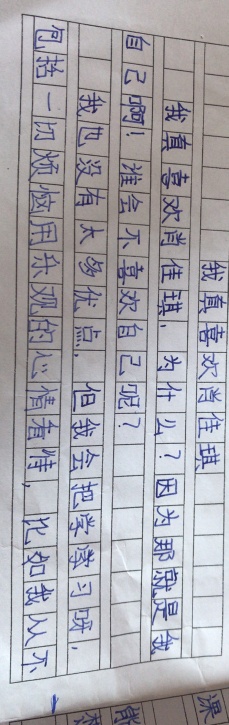 我真喜欢肖佳琪
我真喜欢肖佳琪,为什么?因为那就是我
自己啊!谁会不喜欢自己呢?
我也没有太多优点,但我会把学习呀,
包括一切烦恼用乐观的心情看待,比如我从不
课
能